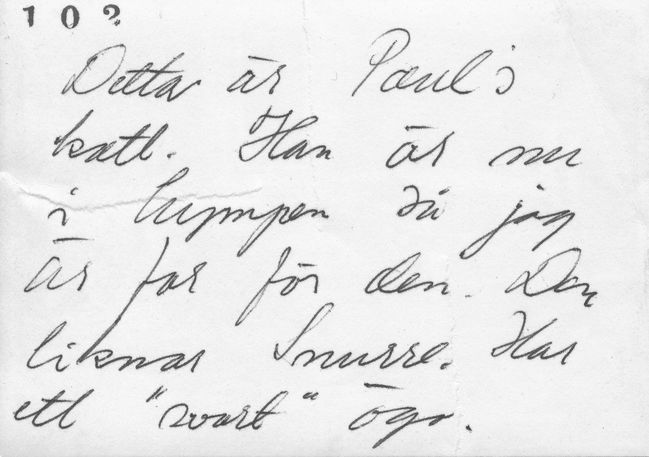 102
Detta är Paul's
katt. Han är nu
i lumpen så jag
är far för den. Den
liknar Snurre. Har
ett "svart" öga.